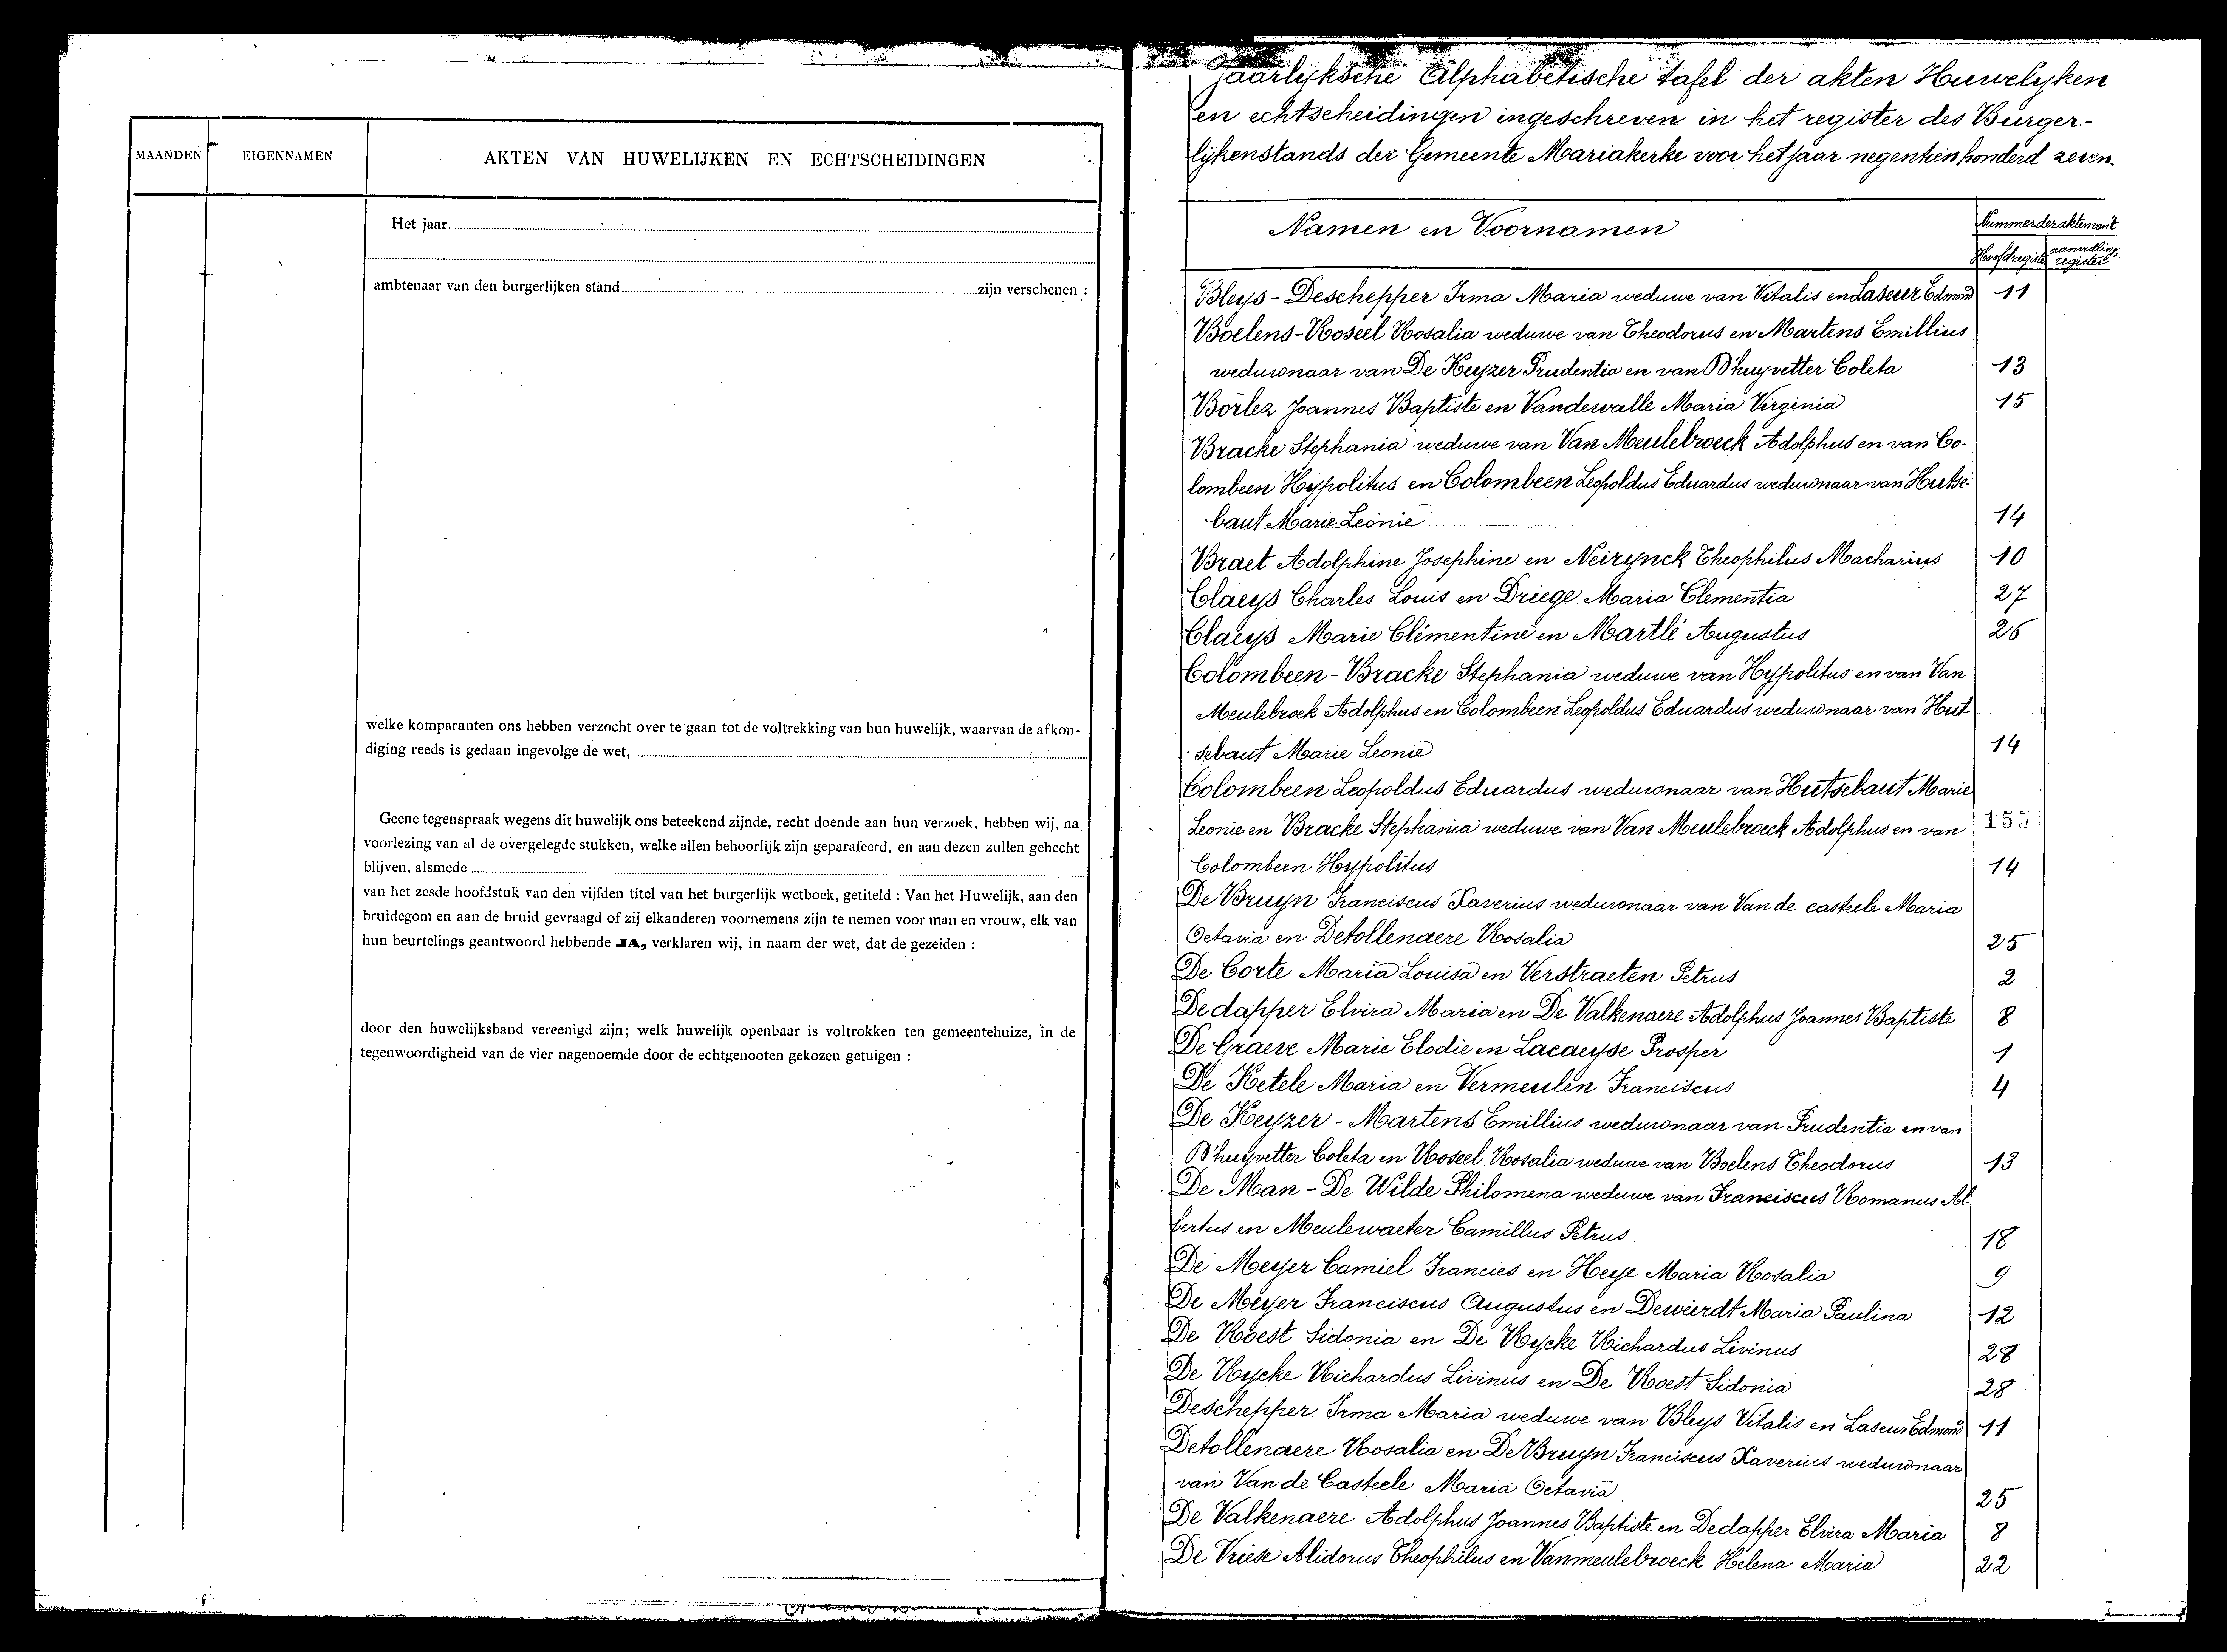 MAANDEN EIGENNAMEN AKTEN VAN HUWELIJKEN EN ECHTSCHEIDINGEN
Het jaar
ambtenaar van den burgerlijken stand zijn verschenen :
welke komparanten ons hebben verzocht over te gaan tot de voltrekking van hun huwelijk, waarvan de afkon-
diging reeds is gedaan ingevolge de wet,
Geene tegenspraak wegens dit huwelijk ons beteekend zijnde, recht doende aan hun verzoek, hebben wij, na
voorlezing van al de overgelegde stukken, welke allen behoorlijk zijn geparafeerd, en aan dezen zullen gehecht
blijven, alsmede
van het zesde hoofdstuk van den vijfden titel van het burgerlijk wetboek, getiteld : Van het Huwelijk, aan den
bruidegom en aan de bruid gevraagd of zij elkanderen voornemens zijn te nemen voor man en vrouw, elk van
hun beurtelings geantwoord hebbende JA, verklaren wij, in naam der wet, dat de gezeiden :
door den huwelijksband vereenigd zijn; welk huwelijk openbaar is voltrokken ten gemeentehuize, in de
tegenwoordigheid van de vier nagenoemde door de echtgenooten gekozen getuigen :
Jaarlyksche Alphabetische tafel der akten Huwelyken
en echtscheidingen ingeschreven in het register des Burger-
lijkenstands der Gemeente Mariakerke voor het jaar negentien honderd zeven.
Namen en Voornamen Nummer der akten van't
Hoofdregister aanvulling register
Bleys - Deschepper Irma Maria weduwe van Vitalis en Laseur Edmond 11
Boelens - Roseel Rosalia weduwe van Theodorus en Martens Emillius
weduwnaar van De Keyzer Prudentia en van D'huyvetter Coleta 13
Borlez Joannes Baptiste en Vandewalle Maria Virginia 15
Bracke Stephania weduwe van Van Meulebroeck Adolphus en van Co-
lombeen Hypolitus en Colombeen Leopoldus Eduardus weduwnaar van Hutse-
baut Marie Leonie 14
Braet Adolphine Josephine en Neirynck Theophilus Macharius 10
Claeys Charles Louis en Driege Maria Clementia 27
Claeys Marie Clémentine en Martlé Augustus 26
Colombeen - Bracke Stephania weduwe van Hypolitus en van Van
Meulebroek Adolphus en Colombeen Leopoldus Eduardus weduwnaar van Hut
sebaut Marie Leonie 14
Colombeen Leopoldus Eduardus weduwnaar van Hutsebaut Marie
Leonie en Bracke Stephania weduwe van Van Meulebroeck Adolphus en van 155
Colombeen Hypolitus 14
De Bruyn Franciscus Xaverius weduwnaar van Van de casteele Maria
Octavia en Detollenaere Rosalia 25
De Corte Maria Louisa en Verstraeten Petrus 2
Dedapper Elvira Maria en De Valkenaere Adolphus Joannes Baptiste 8
De Graeve Marie Elodie en Lacaeyse Prosper 1
De Ketele Maria en Vermeulen Franciscus 4
De Keyzer - Martens Emillius weduwnaar van Prudentia en van
D'huyvetter Coleta en Roseel Rosalia weduwe van Boelens Theodorus 13
De Man - De Wilde Philomena weduwe van Franciscus Romanus Al
bertus en Meulewaeter Camillus Petrus 18
De Meyer Camiel Francies en Heye Maria Rosalia 9
De Meyer Franciscus Augustus en Deweirdt Maria Paulina 12
De Roest Sidonia en De Rycke Richardus Livinus 28
De Rycke Richardus Livinus en De Roest Sidonia 28
Deschepper Irma Maria weduwe van Bleys Vitalis en Laseur Edmond 11
Detollenaere Rosalia en De Bruyn Franciscus Xaverius weduwnaar
van Van de Casteele Maria Octavia 25
De Valkenaere Adolphus Joannes Baptiste en Dedapper Elvira Maria 8
De Vriese Alidorus Theophilus en Vanmeulebroeck Helena Maria 22